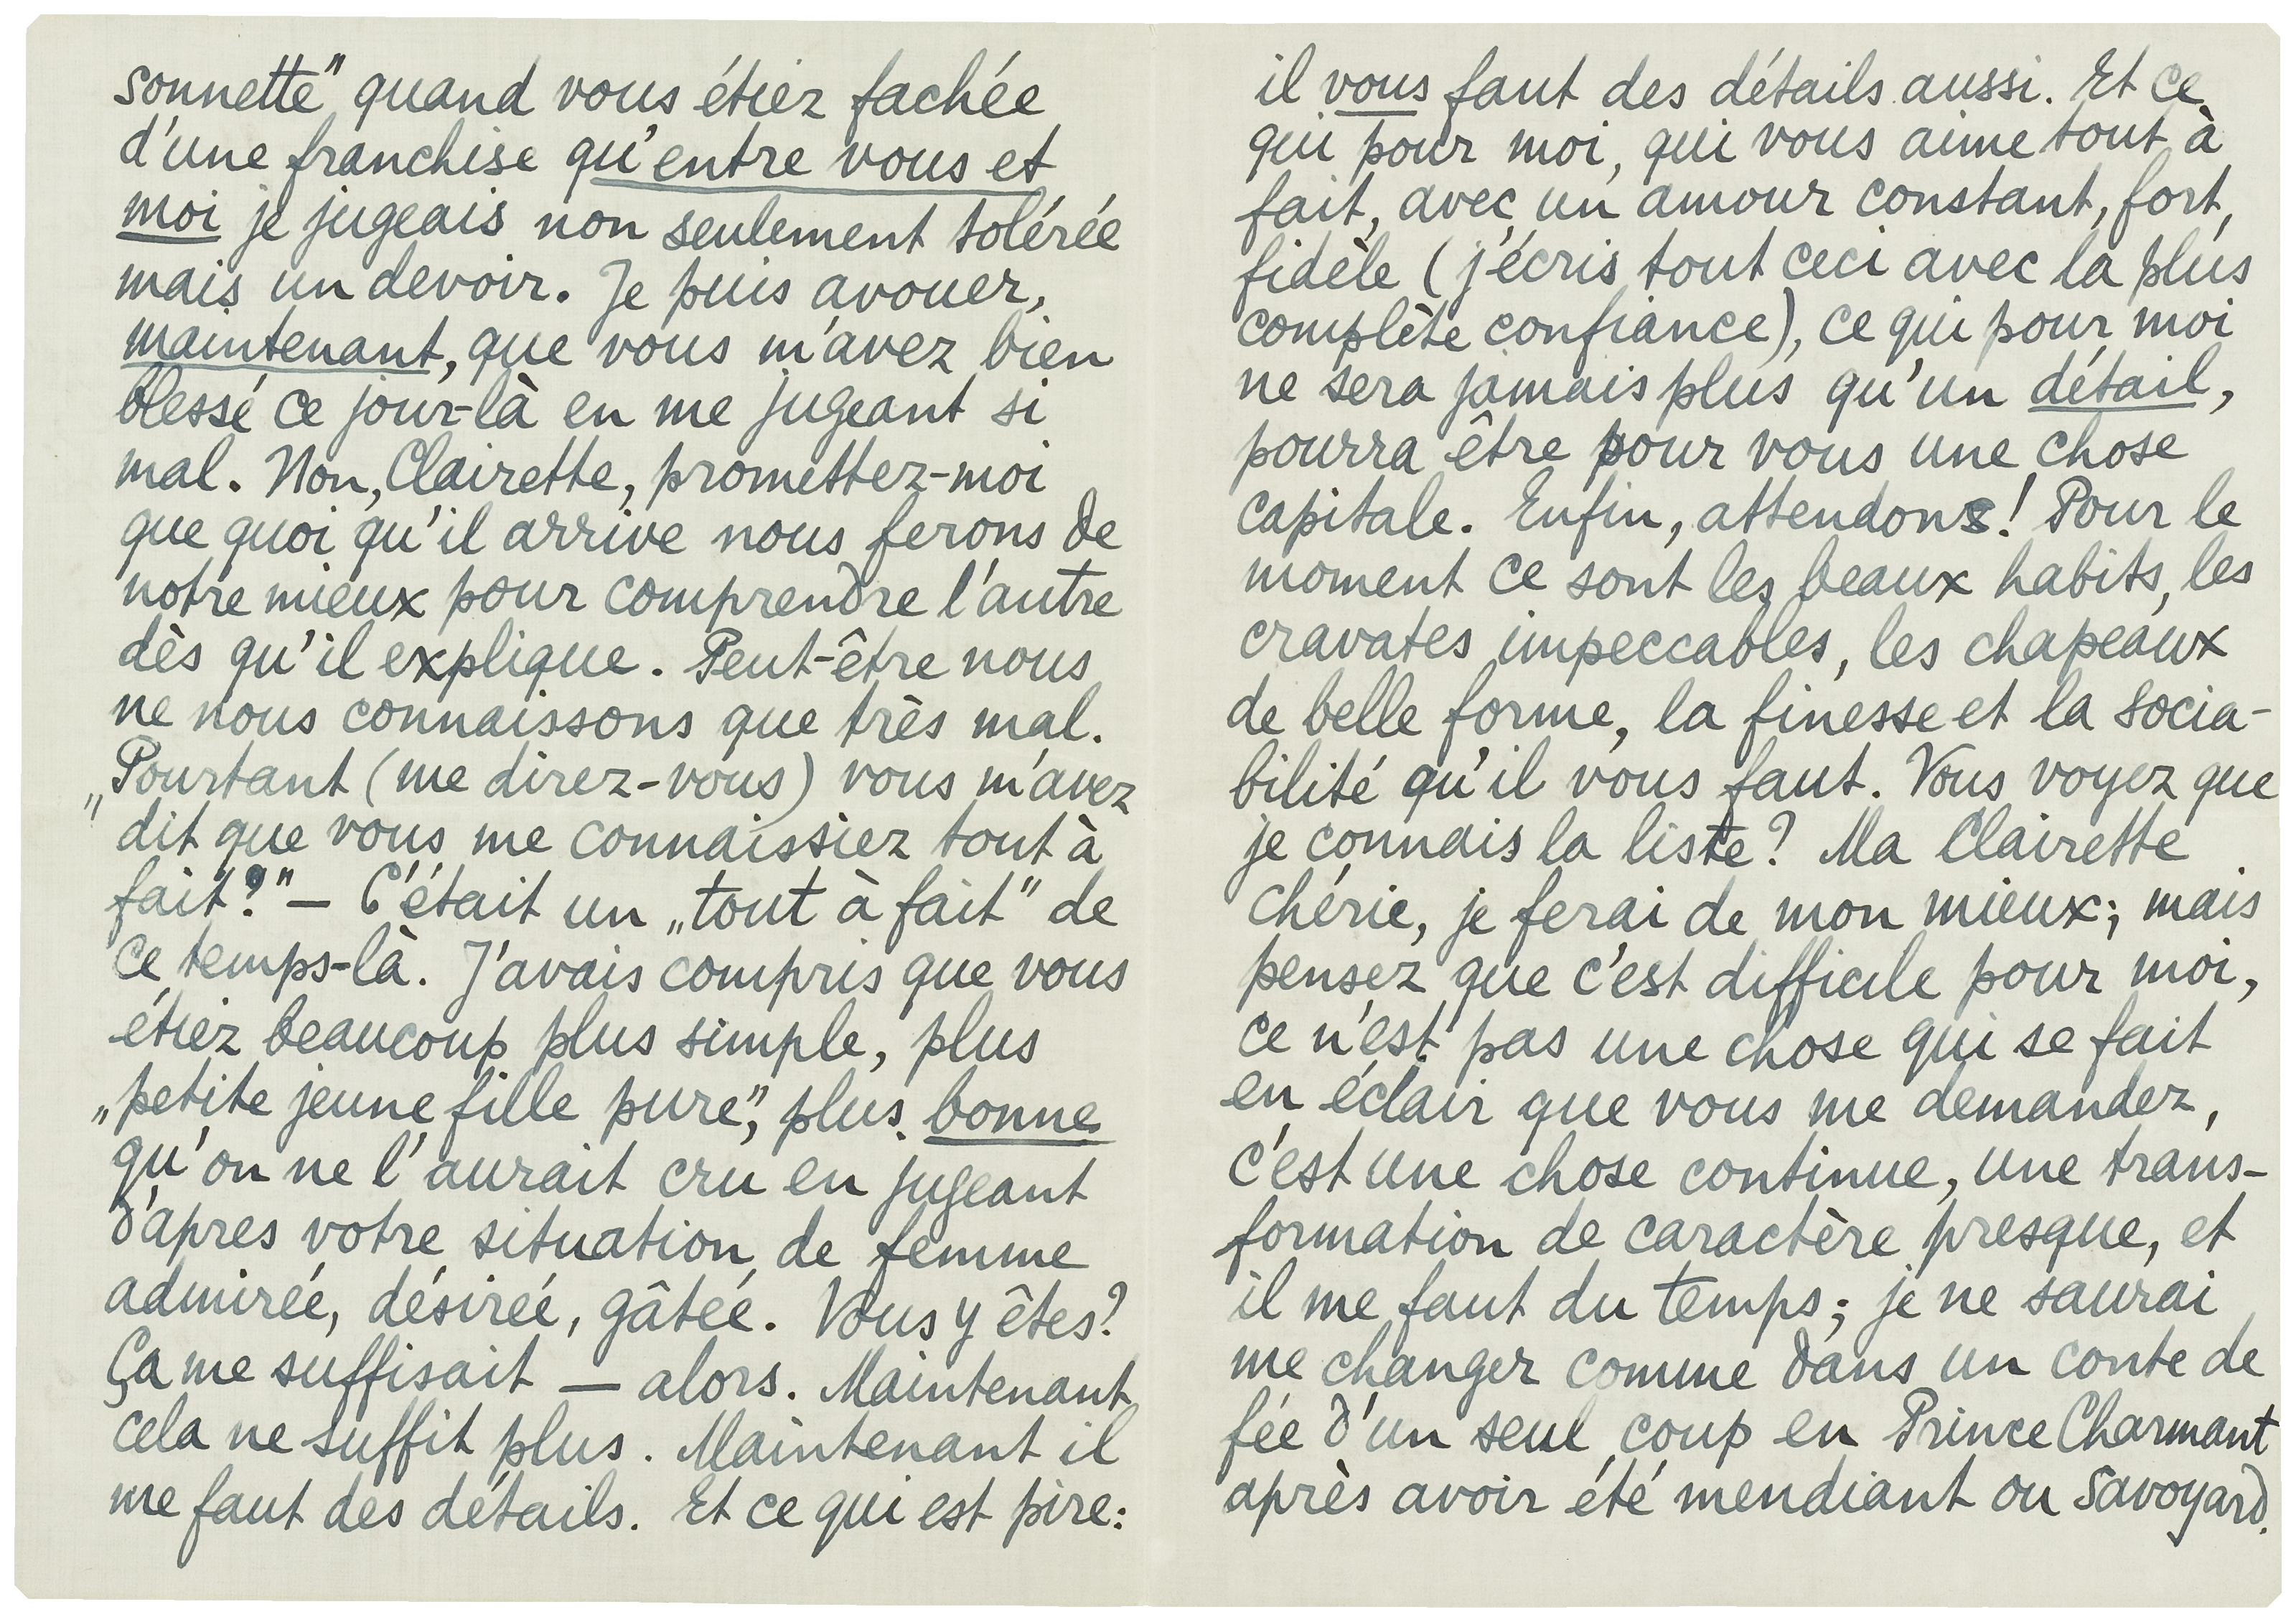 sonnette" quand vous étiez fachée
d'une franchise qu'entre vous et
moi je jugeais non seulement tolérée
mais un devoir. Je puis avouer,
maintenant, que vous m'avez bien
blessé ce jour-là en me jugeant si
mal. Non, Clairette, promettez-moi
que quoi qu'il arrive nous ferons de
notre mieux pour comprendre l'autre
dès qu'il explique. Peut-être nous
ne nous connaissons que très mal.
„Pourtant (me direz-vous) vous m'avez
dit que vous me connaissiez tout à
fait?" — C'était un „tout à fait" de
ce temps-là. J'avais compris que vous
étiez beaucoup plus simple, plus
„petite jeune fille pure", plus bonne
qu'on ne l'aurait cru en jugeant
d'apres votre situation de femme
admirée, désirée, gâtée. Vous y êtes?
Ça me suffisait — alors. Maintenant
cela ne suffit plus. Maintenant il
me faut des détails. Et ce qui est pire:
il vous faut des détails aussi. Et ce
qui pour moi, qui vous aime tout à
fait, avec un amour constant, fort,
fidèle (j'écris tout ceci avec la plus
complète confiance), ce qui pour moi
ne sera jamais plus qu'un détail,
pourra être pour vous une chose
capitale. Enfin, attendons! Pour le
moment ce sont les beaux habits, les
cravates impeccables, les chapeaux
de belle forme, la finesse et la socia-
bilité qu'il vous faut. Vous voyez que
je connais la liste? Ma Clairette
chérie, je ferai de mon mieux; mais
pensez que c'est difficile pour moi,
ce n'est pas une chose qui se fait
en éclair que vous me demandez,
c'est une chose continue, une trans-
formation de caractère presque, et
il me faut du temps; je ne saurai
me changer comme dans un conte de
fée d'un seul coup en Prince Charmant
après avoir été mendiant ou Savoyard.